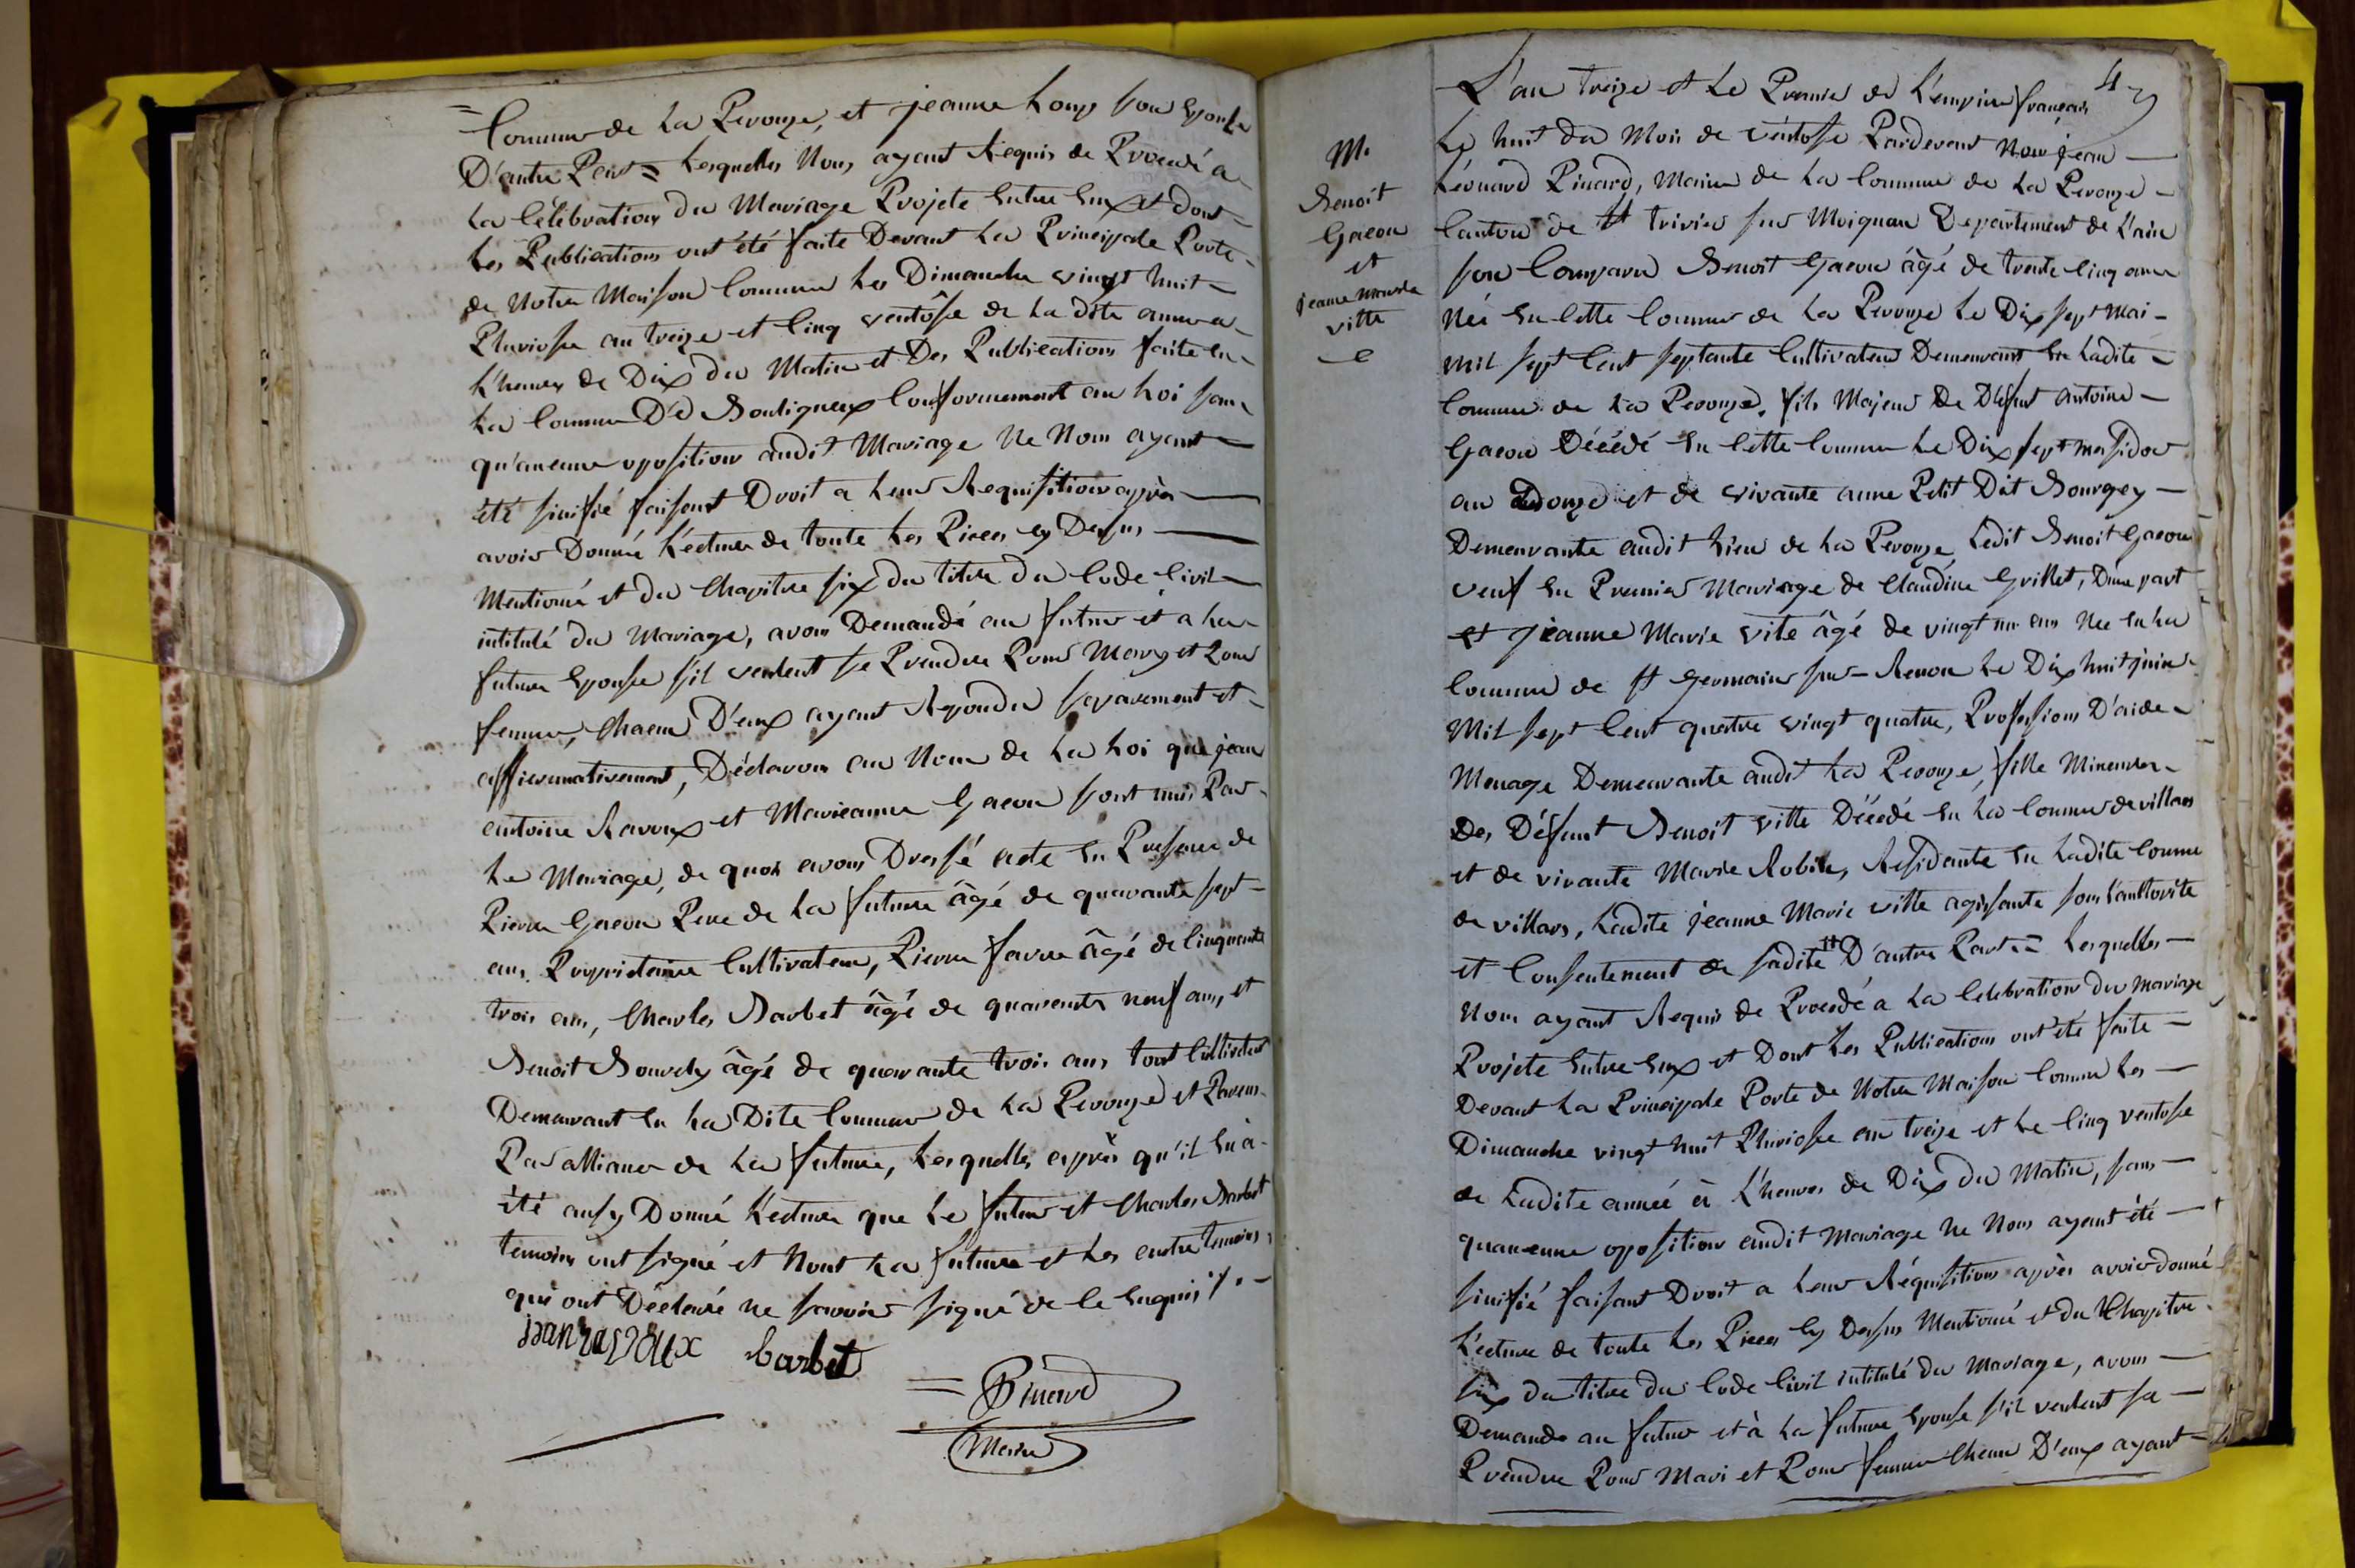 = Commune de La Perouze, et jeanne Loup Son Epouse
D'autre Part = Lesquelles Nous ayant Requis de Procedé a
La Célébration du Mariage Projeté Entre Eux et dont =
Les Publications ont été faite Devant La Principale Porte -
de Notre Maison Commune Les Dimanche vingt huit =
Pluviose an treize et Cinq ventôse de La dite année a -
L'heure de Dix du Matin et Des Publications faite En -
La Commune De Bouligneux Conformement au Loi Sans
qu'aucune oposition audit Mariage Ne Nous ayant =
été Sinifié faisant Droit a Leur Requisition après —
avoir Donné Lecture de toute Les Pieces cy Dessus —
Mentionné et du Chapitre six du titre du Code Civil —
intitulé du Mariage, avons Demandé au futur et a La -
future Epouse s'il veulent se Prendre Pour Mary et Pour
femme, Chacun D'eux ayant Repondu Separement et -
affirmativement, Déclarons au Nom de La Loi que jean
antoine Ravoux et Marieanne Gacon sont unis Par -
Le Mariage, de quoi avons Dressé acte En Presence de
Pierre Gacon Pere de La future âgé de quarante sept =
ans Propriétaire Cultivateur, Pierre favre âgé de Cinquante
trois ans, Charles Barbet âgé de quarante neuf ans, et
Benoit Bouvchy âgé de quarante trois ans tout Cultivateur
Demeurant En La Dite Commune de La Perouze et Parens -
Par alliance de La future, Lesquelles après qu'il En a -
été aussy Donné Lecture que Le futur et Charles Barbet
temoins ont signé et Nont La future et Les autre temoins,
qui ont Déclaré ne Savoir Signé de Ce Enquis ./. -
jean ravaux Barbet
= Pinard
Maire
47
M.
Benoit
Gacon
et
jeanne marie
ville
L'an treize et Le Premier de L'empire français
Le huit du Mois de ventose Pardevant Nous jean —
Léonard Pinard, Maire de La Commune de La Perouze -
Canton de St trivier sur Moignan Departement de L'ain
Son Comparu Benoit Gacon âgé de trente Cinq ans
Née En Cette Commune de La Perouze Le Dix sept Mai -
Mil sept Cent septante Cultivateur Demeurant En Ladite -
Commune de La Perouze, fils Majeur De Défunt antoine -
Gacon Décédé En Cette Commune Le Dix sept messidor
an Douze et de vivante anne Petit Dit Bourgey -
Demeurante audit Lieu de La Perouze Ledit Benoit Gacon
veuf En Premier Mariage de Claudine Grillet, D'une part
et jeanne Marie vile âgé de vingt un ans Née En La
Commune de St germain sur Renon Le Dix huit juin -
Mil sept Cent quatre vingt quatre, Profession D'aide -
Menage Demeurante audit La Perouze, fille Mineure -
Des Défunt Benoit ville Décédé En La Commune de villars
et de vivante Marie Robin, Residante En Ladite Commune
de villars, Ladite jeanne Marie ville agissante sous L'aultorité
et Consentement de sadite # D'autre Part = Lesquelles —
Nous ayant Requis de Procedé a La Celebration du Mariage
Projeté Entre Eux et Dont Les Publications ont été faite —
Devant La Principale Porte de Notre Maison Commune Les —
Dimanche vingt huit Pluviose an treize et Le Cinq ventose
de Ladite année à L'heure de Dix du Matin, sans —
quaucune oposition audit Mariage ne Nous ayant été —
sinifié faisant Droit a Leur Réquisition après avoir donné
Lecture de toute Les Pieces Cy Dessus Mentionné et du Chapitre
six du titre du Code Civil intitulé du Mariage, avons —
Demandé au futur et à La future Epouse s'il veulent se —
Prendre Pour Mari et Pour femme Chacun D'eux ayant =